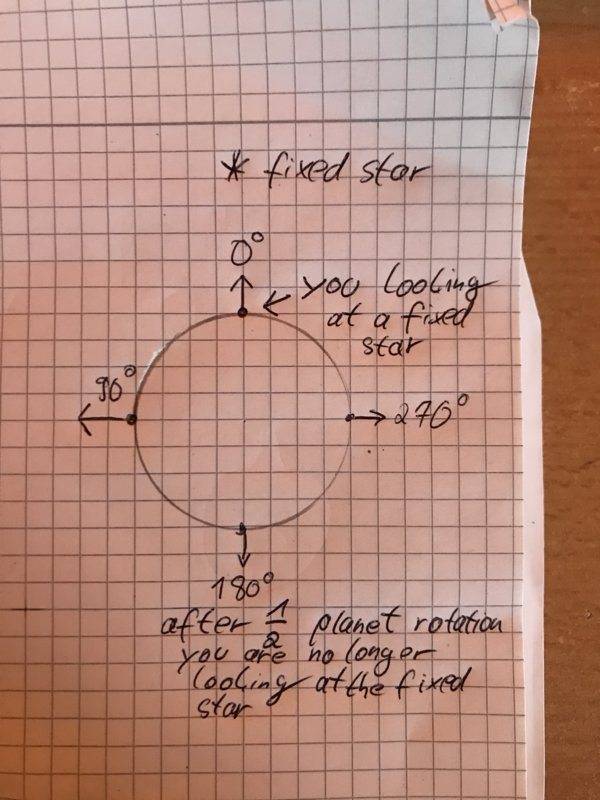 * fixed star
0°
you looking
at a fixed
star
90°
270°
180°
after 1/2 planet rotation
you are no longer
looking at the fixed
star